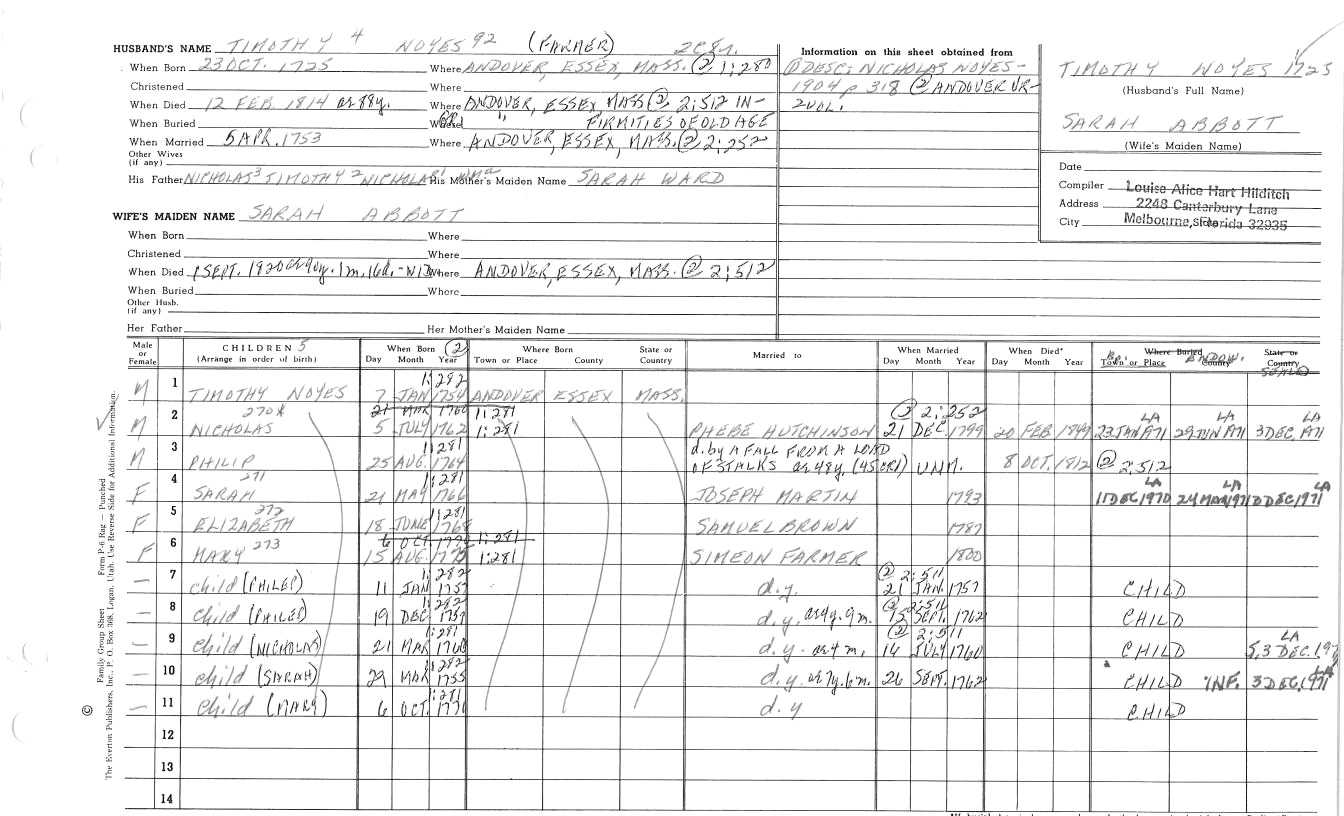 HUSBAND'S NAME TIMOTHY 4 NOYES 92 (FARMER)
When Born 23 OCT. 1725 Where ANDOVER, ESSEX, MASS. ② 1:280
Christened Where
When Died 12 FEB 1814 ae 88y. Where ANDOVER, ESSEX, MASS ② 2:512 IN-
When Buried FIRMITIES OF OLD AGE
When Married 5 APR. 1753 Where ANDOVER, ESSEX, MASS. ② 2:252
Other Wives
(if any)
His Father NICHOLAS³ TIMOTHY² NICHOLAS¹ His Mother's Maiden Name SARAH WARD
Information on this sheet obtained from
① DESC: NICHOLAS NOYES-
1904 p 318 ② ANDOVER VR-
2 VOL.
TIMOTHY NOYES 1725
(Husband's Full Name)
SARAH ABBOTT
(Wife's Maiden Name)
Date
Compiler Louise Alice Hart Hilditch
Address 2248 Canterbury Lane
City Melbourne, Florida 32935
State
WIFE'S MAIDEN NAME SARAH ABBOTT
When Born Where
Christened Where
When Died 1 SEPT. 1820 ae 90y. 1m. 16d. - WID. Where ANDOVER, ESSEX, MASS. ② 2:512
When Buried Where
Other Husb.
(if any)
Her Father Her Mother's Maiden Name
Male or Female CHILDREN 5 (Arrange in order of birth) When Born ② Day Month Year Where Born Town or Place County State or Country Married to When Married Day Month Year When Died* Day Month Year Where Buried Town or Place County State or Country
1:282
M 1 TIMOTHY NOYES 7 JAN 1754 ANDOVER ESSEX MASS.
270* 21 MAR 1760 1:281 ② 2:252 LA LA LA
M 2 NICHOLAS 5 JULY 1762 1:281 PHEBE HUTCHINSON 21 DEC. 1799 20 FEB 1849 23 JAN 1971 29 JUN 1971 3 DEC. 1971
1:281 d. by A FALL FROM A LOAD
M 3 PHILIP 25 AUG. 1764 OF STALKS ae 48y. (45 CR1) UNM. 8 OCT. 1812 ② 2:512
271 1:281 LA LA LA
F 4 SARAH 21 MAY 1766 JOSEPH MARTIN 1793 11 DEC 1970 24 MAR 1971 3 DEC 1971
272 1:281
F 5 ELIZABETH 18 JUNE 1768 SAMUEL BROWN 1787
273 6 OCT. 1770 1:281
F 6 MARY 15 AUG. 1775 1:281 SIMEON FARMER 1800
1:282 ② 2:511
— 7 child (PHILEP) 11 JAN 1757 d.y. 21 JAN. 1757 CHILD
1:282 ② 2:511
— 8 child (PHILEP) 19 DEC. 1757 d.y. ae 4y. 9m. 12 SEPT. 1762 CHILD
1:281 ② 2:511 LA
— 9 child (NICHOLAS) 21 MAR 1760 d.y. ae 4m. 14 JULY 1760 CHILD S. 3 DEC. 197
1:282 LA
— 10 child (SARAH) 29 MAR 1755 d.y. ae 7y. 6m. 26 SEPT. 1762 CHILD INF. 3 DEC. 1971
1:281
— 11 child (MARY) 6 OCT. 1770 d.y CHILD
12
13
14
© The Everton Publishers, Inc., P. O. Box 368, Logan, Utah. Use Reverse Side for Additional Information.
Family Group Sheet Form P-6 Rag — Punched